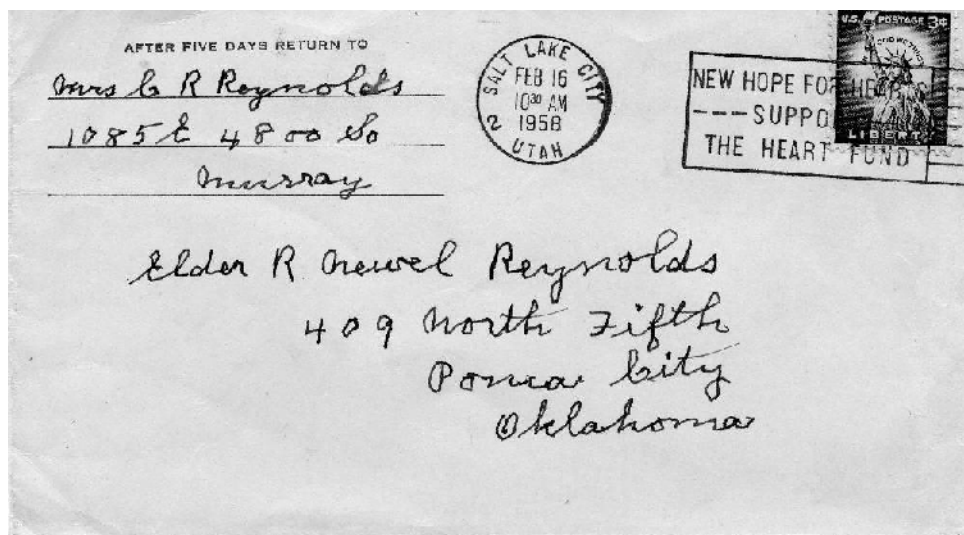 AFTER FIVE DAYS RETURN TO
Mrs C R Reynolds
1085 E 4800 So
Murray
SALT LAKE CITY
FEB 16
10 30 AM
1958
2
UTAH
NEW HOPE FOR HEARTS
---SUPPO
THE HEART FUND
U.S. POSTAGE 3¢
IN GOD WE TRUST
LIBERTY
Elder R Newel Reynolds
409 North Fifth
Ponca City
Oklahoma